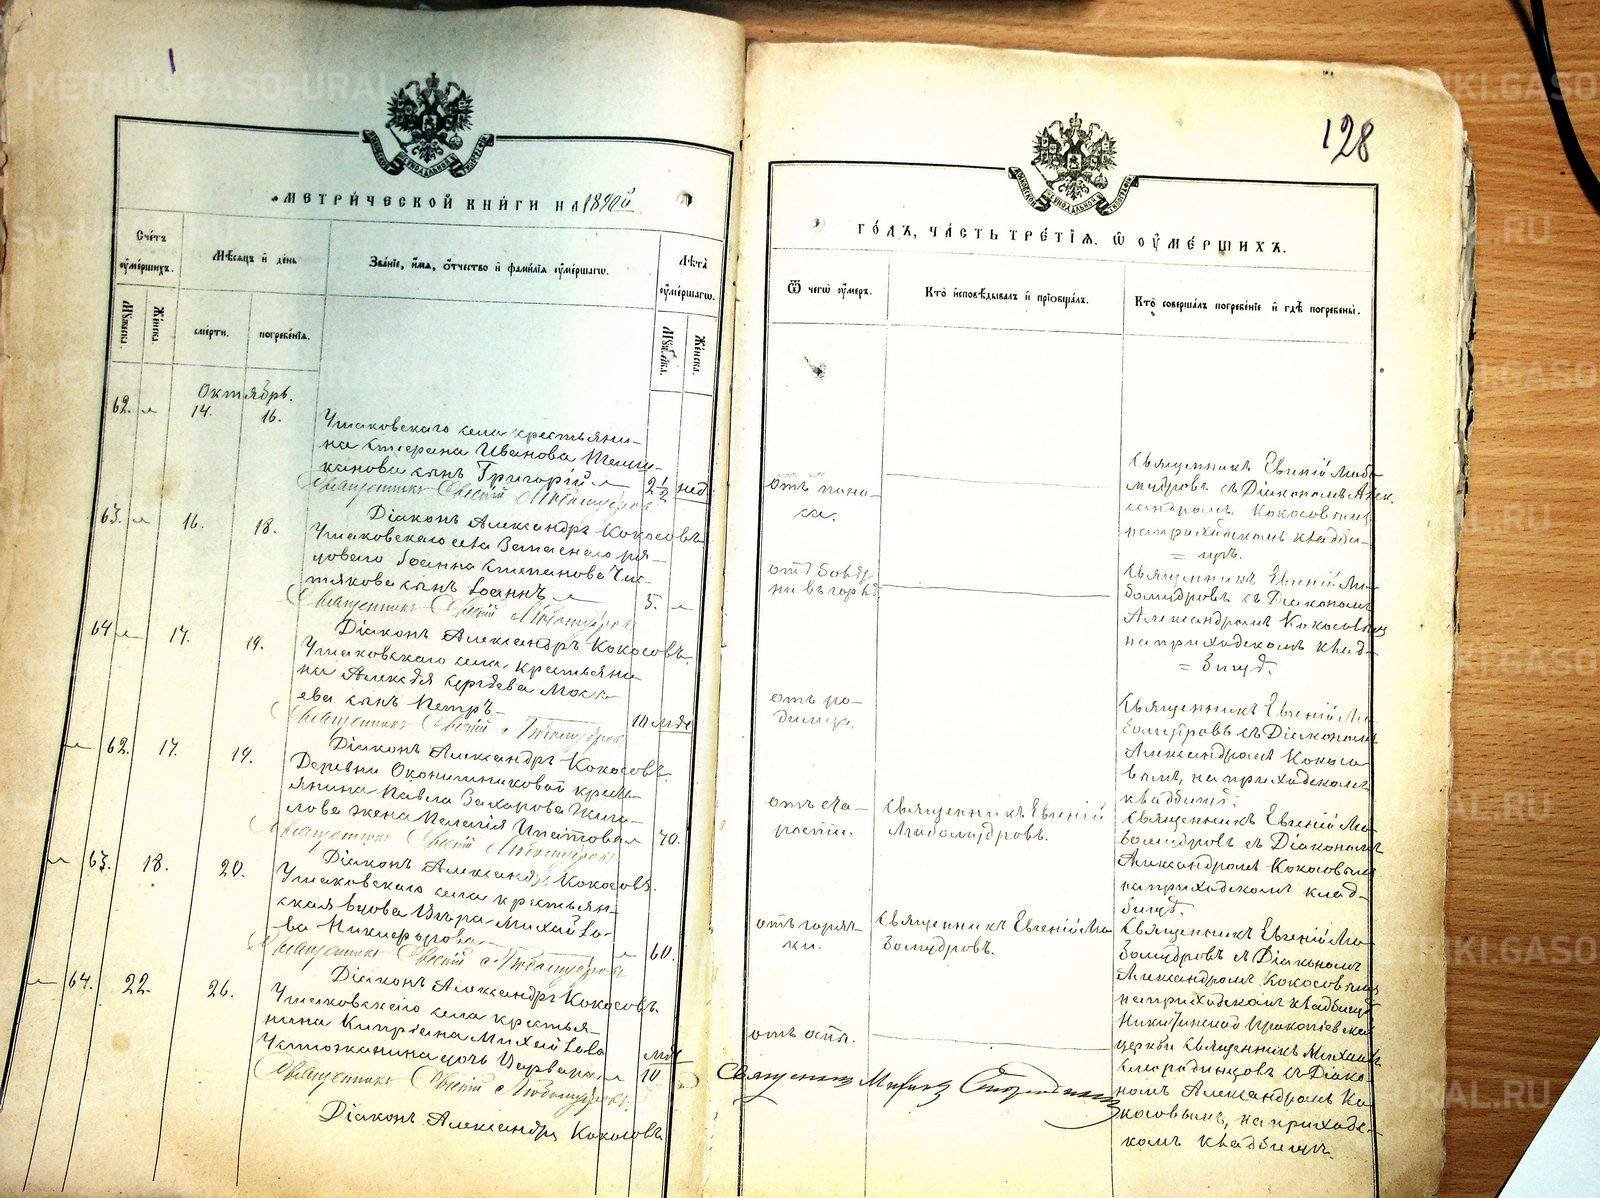 128
Метрической книги на 1890й
годъ, часть третїѧ, ѿ оумершихъ.
Счетъ оумершихъ.
Мѣсѧцъ и день
Званїе, имѧ, отчество и фамилїѧ оумершагѡ.
Лѣта оумершагѡ.
Мꙋжеска.
Женска.
смерти.
погребенїѧ.
Мꙋжеска.
Женска.
Ѿ чегѡ оумеръ.
Кто исповѣдывалъ и прїобщалъ.
Кто совершалъ погребенїе и гдѣ погребены.
Октябрь.
62. 14. 16.
Ушаковскаго села крестьяни-
на Стефана Иванова
канова сынъ Григорій 2 1/2 нед.
Священникъ Евгеній Любомудровъ
Діаконъ Александръ Кокосовъ
отъ поно-
са.
Священникъ Евгеній Любо-
мудровъ съ Діакономъ Алек-
сандромъ Кокосовымъ
на приходскомъ кладби-
щѣ.
63. 16. 18.
Ушаковскаго села Запаснаго ря-
доваго Іоанна Степанова Чис-
тякова сынъ Іоаннъ 5.
Священникъ Евгеній Любомудровъ
Діаконъ Александръ Кокосовъ
въ горлѣ
Священникъ Евгеній Лю-
бомудровъ съ Діакономъ
Александромъ Кокосовымъ
на приходскомъ клад-
бищѣ.
64 17. 19.
Ушаковскаго села крестьяни-
на Алексѣя Сергѣева
сынъ Петръ 10 мѣс
Священникъ Евгеній Любомудровъ
Діаконъ Александръ Кокосовъ
отъ ро-
димца.
Священникъ Евгеній Лю-
бомудровъ съ Діакономъ
Александромъ Кокосо-
вымъ, на приходскомъ
кладбищѣ.
62. 17. 19.
Деревни Оконишниковой кресть-
янина Павла Захарова
жена Пелагія 70.
Священникъ Евгеній Любомудровъ
Діаконъ Александръ Кокосовъ
отъ ста-
рости.
Священникъ Евгеній
Любомудровъ.
Священникъ Евгеній Лю-
бомудровъ съ Діакономъ
Александромъ Кокосовымъ
на приходскомъ клад-
бищѣ.
63. 18. 20.
Ушаковскаго села крестьян-
ская вдова Вѣра Михайло-
ва Никифорова 60.
Священникъ Евгеній Любомудровъ
Діаконъ Александръ Кокосовъ.
отъ горяч-
ки.
Священникъ Евгеній Лю-
бомудровъ.
Священникъ Евгеній Лю-
бомудровъ съ Діакономъ
Александромъ Кокосовымъ
на приходскомъ кладбищѣ
64. 22. 26.
Ушаковскаго села кресть-
янина Кипріана Михайлова
Устюжанина дочь Варвара мѣс 10
Священникъ Евгеній Любомудровъ.
Діаконъ Александръ Кокосовъ
отъ оспы.
Священникъ
Прокопіевской
церкви Священникъ Михаилъ
съ Діако-
номъ Александромъ Ко-
косовымъ, на приход-
скомъ кладбищѣ.
METRIKI.GASO-URAL.RU